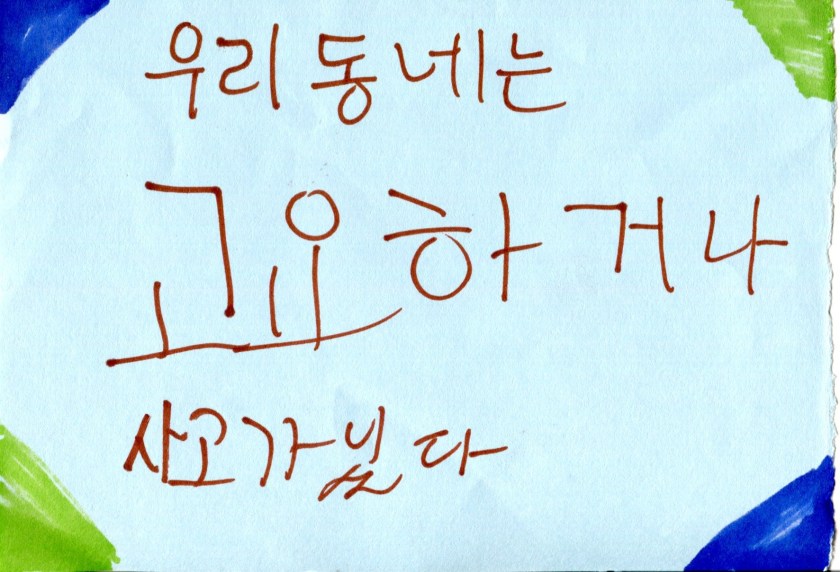 우리 동네는
고요하거나
사고가 났다